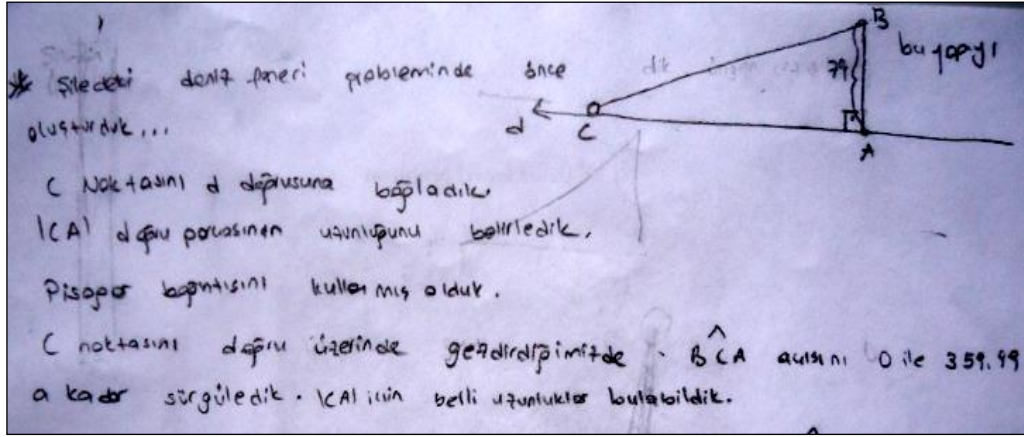 B
bu yapıyı
79
* Şiledeki deniz feneri probleminde önce
d
C
A
oluşturduk...
C Noktasını d doğrusuna bağladık.
|CA| doğru parçasının uzunluğunu belirledik.
Pisagor bağıntısını kullanmış olduk.
C noktasını doğru üzerinde gezdirdiğimizde . BĈA açısını 0 ile 359.99
a kadar sürgüledik. |CA| için belli uzunluklar bulabildik.